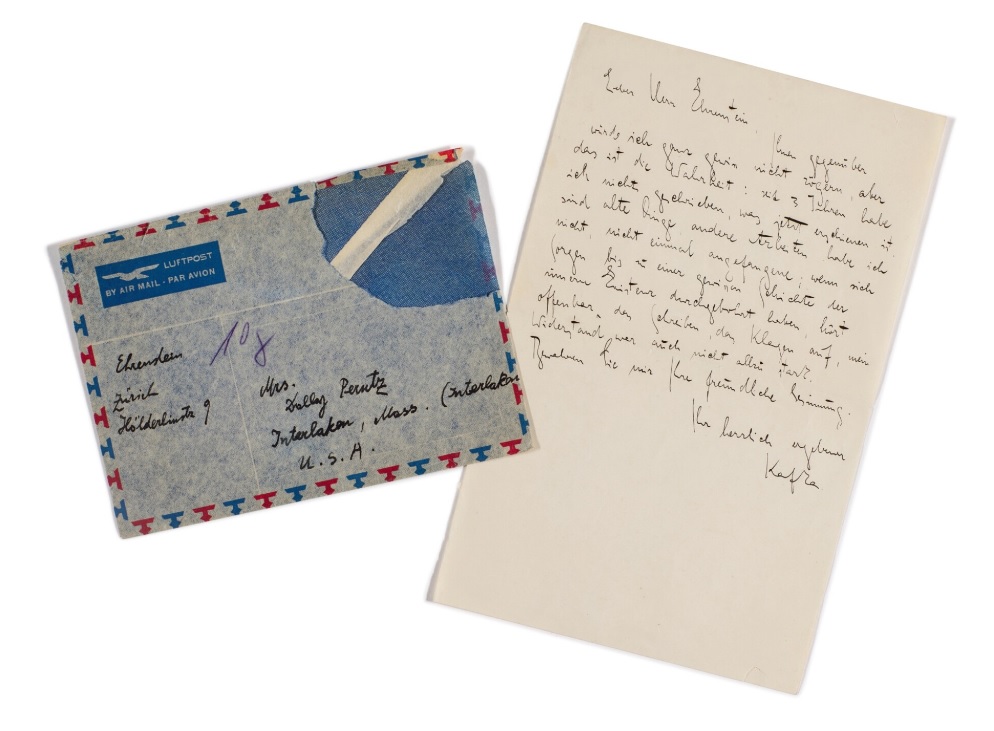 LUFTPOST
BY AIR MAIL - PAR AVION
10 g
Ehrenstein
Zürich
Hölderlinstr 9
Mrs.
Dolly Perutz
Interlaken, Mass. (Interlaken
U.S.A.
Lieber Herr Ehrenstein,
Ihnen gegenüber
würde ich ganz gewiss nicht zögern, aber
das ist die Wahrheit: seit 3 Jahren habe
ich nicht geschrieben, was jetzt erschienen ist
sind alte Dinge, andere Arbeiten habe ich
nicht, nicht einmal angefangene; wenn sich
Sorgen bis zu einer gewissen Schichte der
innern Existenz durchgebohrt haben, hört
offenbar das Schreiben, das Klagen auf, mein
Widerstand war auch nicht allzu stark.
Bewahren Sie mir Ihre freundliche Gesinnung.
Ihr herzlich ergebener
Kafka